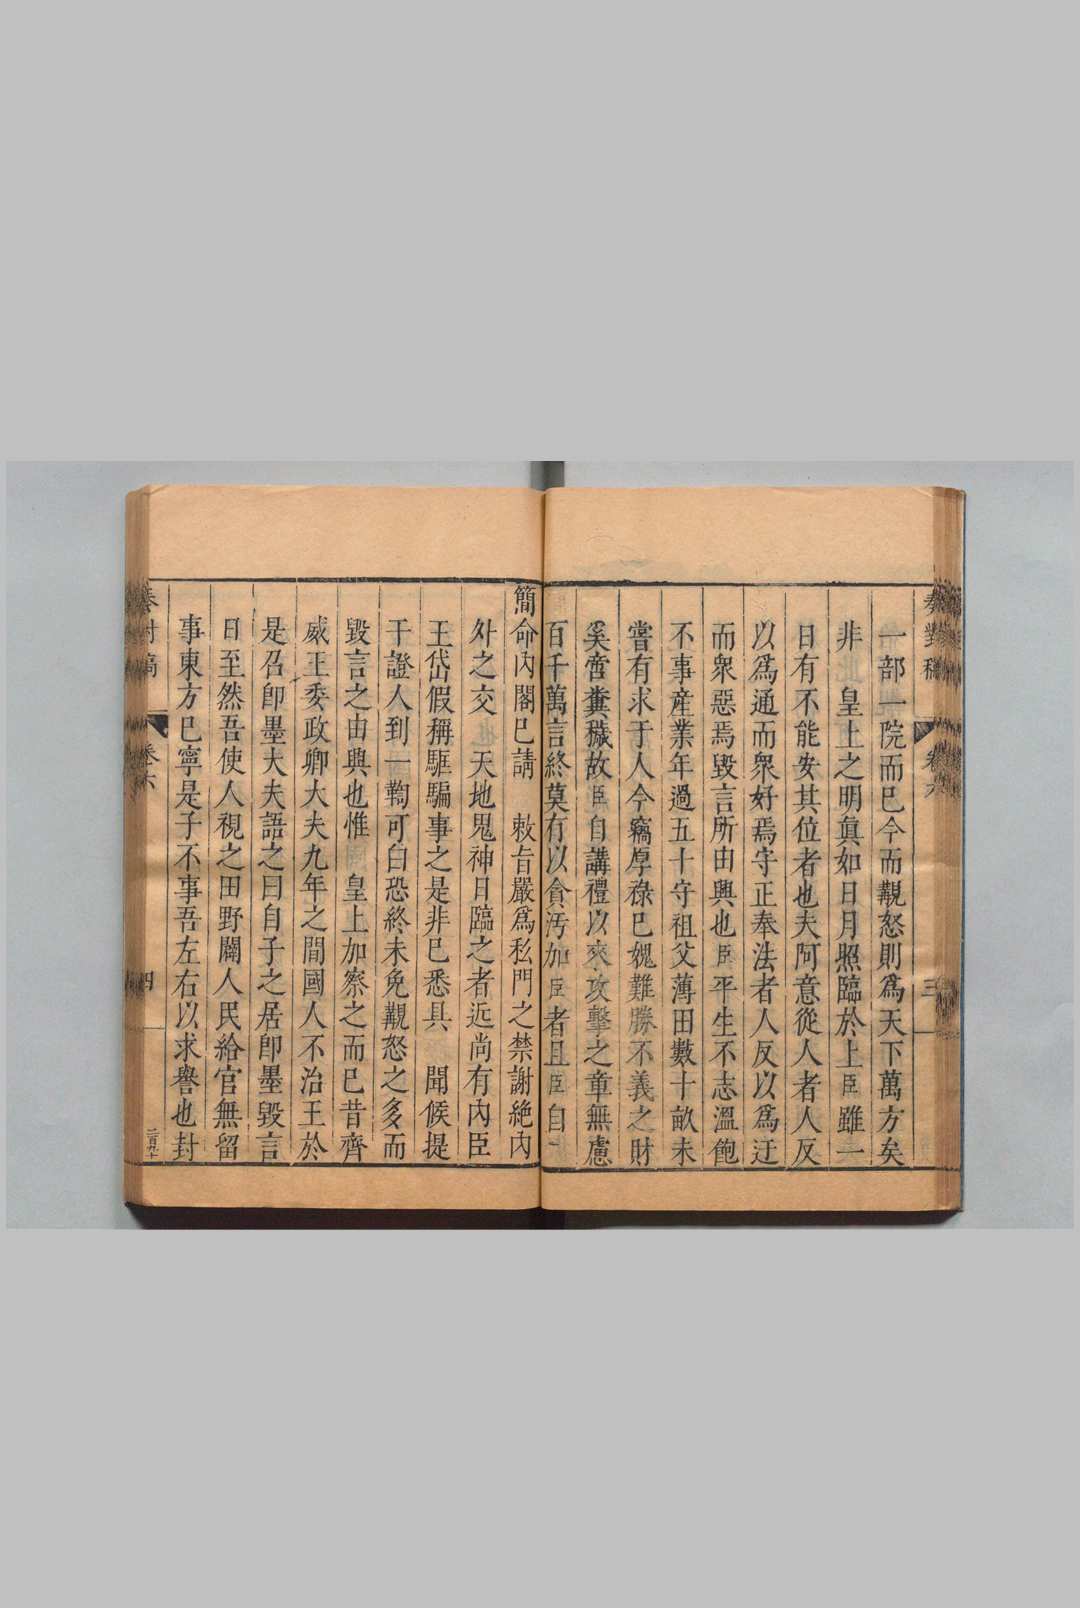 奏對稿
卷六
三
一部一院而已今而觀怒則爲天下萬方矣
非 皇上之明眞如日月照臨於上臣雖一
日有不能安其位者也夫阿意從人者人反
以爲通而衆好焉守正奉法者人反以爲迂
而衆惡焉毀言所由興也臣平生不志溫飽
不事産業年過五十守祖父薄田數十畝未
嘗有求于人今竊厚祿已媿難勝不義之財
奚啻糞穢故臣自講禮以來攻擊之章無慮
百千萬言終莫有以貪汚加臣者且臣自
簡命內閣巳請 敕旨嚴爲私門之禁謝絶內
外之交 天地鬼神日臨之者近尚有內臣
王岱假稱誆騙事之是非已悉具 聞候提
干證人到一鞫可白恐終未免觀怒之多而
毀言之由興也惟 皇上加察之而已昔齊
威王委政卿大夫九年之間國人不治王於
是召卽墨大夫語之曰自子之居卽墨毀言
日至然吾使人視之田野闢人民給官無留
事東方巳寧是子不事吾左右以求譽也封
奏對稿
卷六
四
二百九十